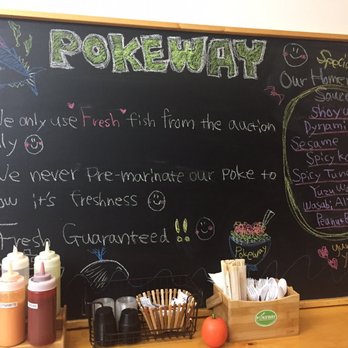 POKEWAY
We only use "Fresh" fish from the auction
We never Pre-marinate our Poke to
it's freshness
Fresh Guaranteed !!
Pokeway
Special
Our Home
sauce
Shoyu
Dynami
Sesame
Spicy Ko
Spicy Tuna
Yuzu Wa
Wasabi Ali
Peanut